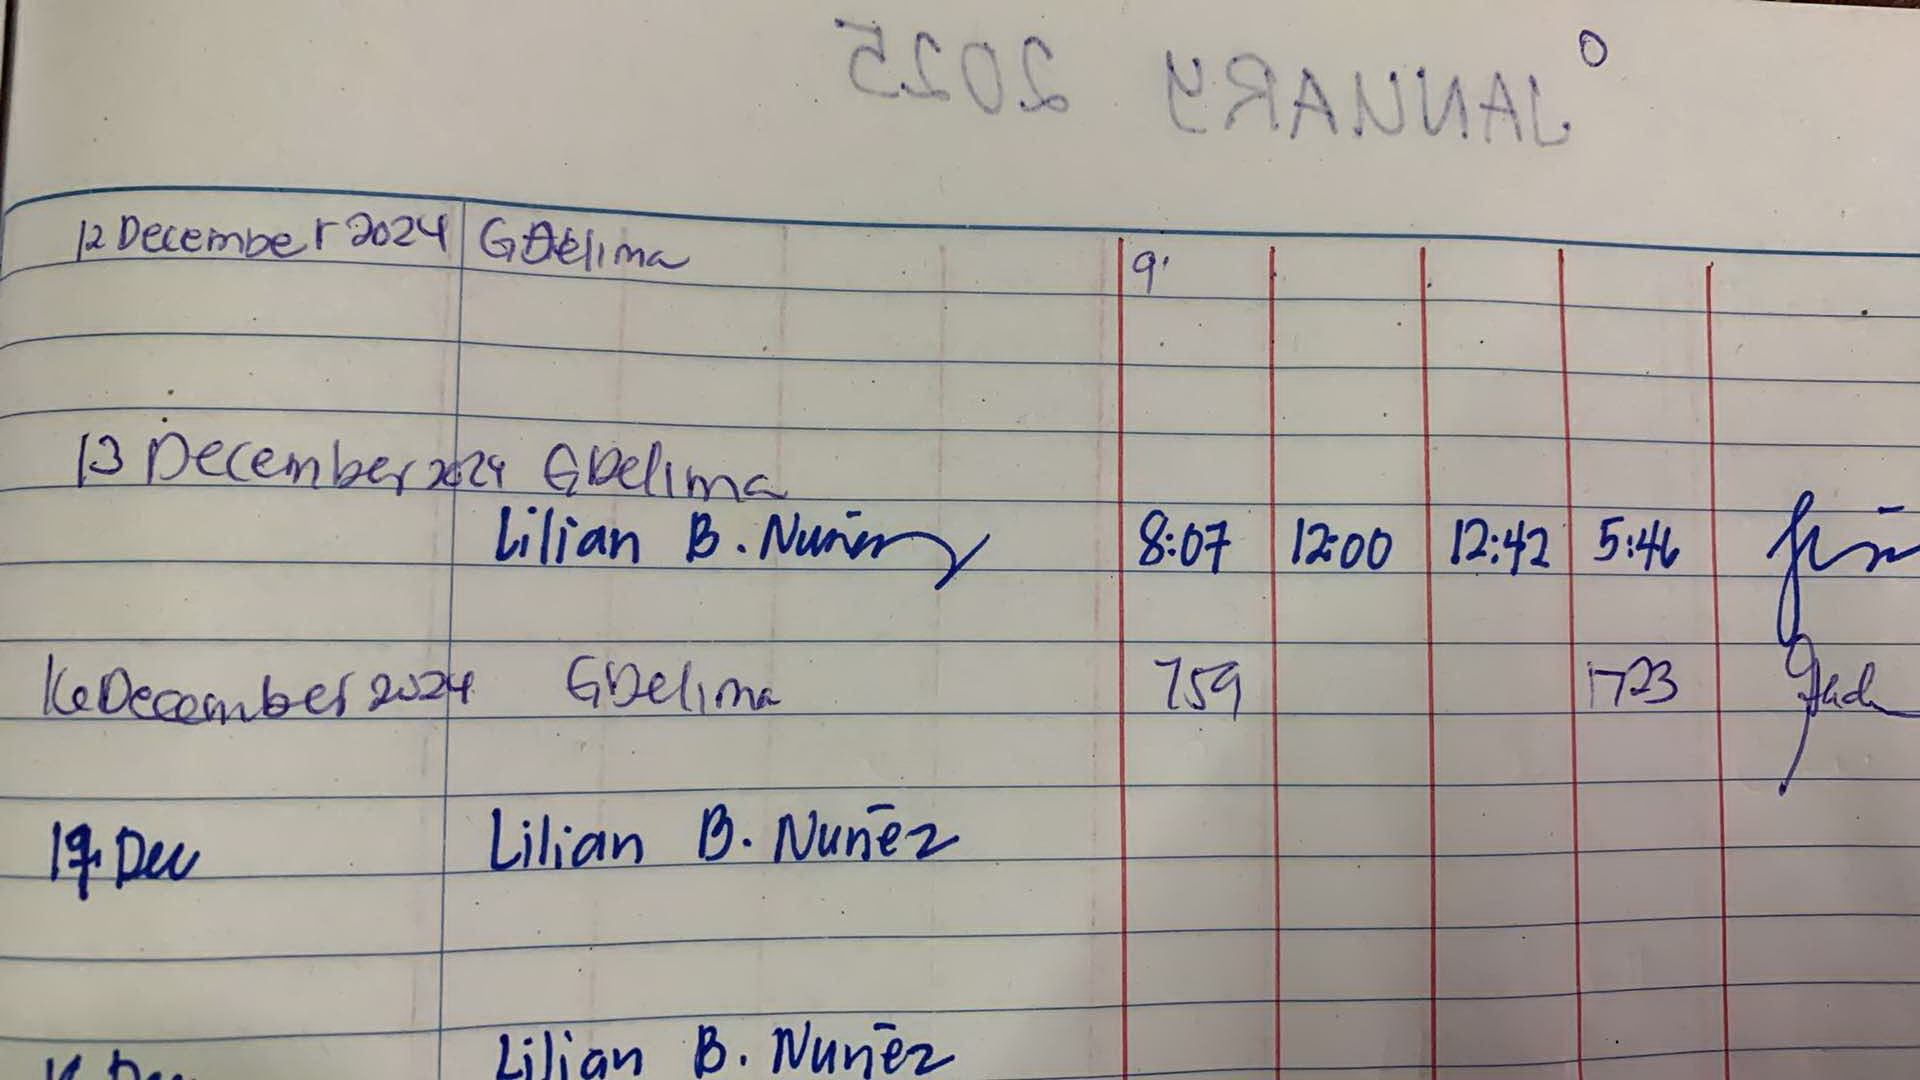 JANUARY 2025
12 December 2024 GDelima 9
13 December 2024 GDelima
Lilian B. Nuñez 8:07 12:00 12:42 5:46
16 December 2024 GDelima 759 1723
Dec Lilian B. Nuñez
Lilian B. Nuñez